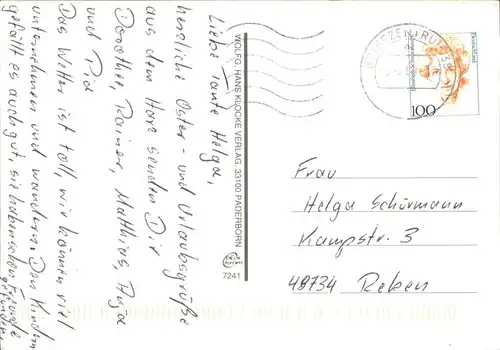 Liebe Tante Helga,
herzliche Oster- und Urlaubsgrüße
aus dem Harz senden Dir
Dorothee, Rainer, Matthias, Anja
und Pia
Das Wetter ist toll, wir können viel
unternehmen und wandern. Den Kindern
gefällt es auch gut, sie haben schon Freunde
WOLFG. HANS KLOCKE VERLAG, 33100 PADERBORN
7241
BRIEFZENTRUM
100
Frau
Helga Schürmann
Kampstr. 3
48734 Reken